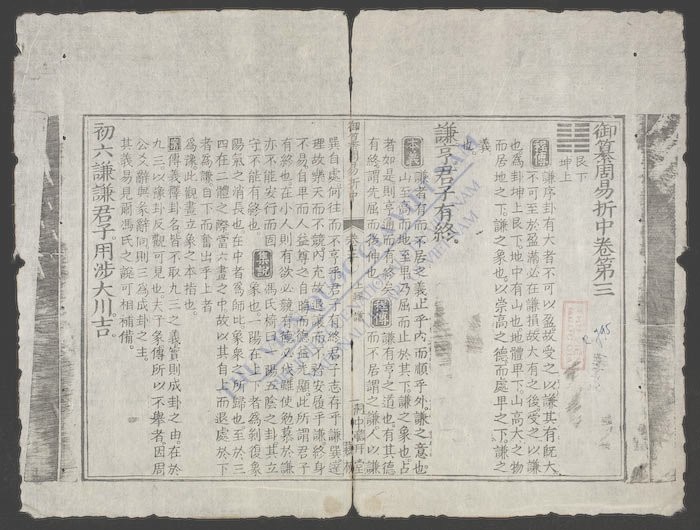 御纂周易折中卷第三
艮下
坤上
程傳 謙序卦有大者不可以盈故受之以謙其有既大
不可至於盈滿必在謙損故大有之後受之以謙
也為卦坤上艮下地中有山也地體卑下山高大之物
而居地之下謙之象也以崇高之德而處卑之下謙之
義
也
謙亨君子有終。
本義 謙者有而不居之義止乎內而順乎外謙之意也
山至高而地至卑乃屈而止於其下謙之象也占
者如是則亨通而有終矣 程傳 謙有亨之道也有其德
有終謂先屈而後伸也 而不居謂之謙人以謙
御纂周易折中 卷三 上經 謙
巽自處何往而不亨乎君子有終君子志存乎謙巽達
理故樂天而不競內充故退讓而不矜安履乎謙終身
不易自卑而人益尊之自晦而德益光顯此所謂君子
有終也在小人則有欲必競有德必伐雖使勉慕於謙
亦不能安行而固
守不能有終也 集說 馮氏椅曰一陽五陰之卦其立
象也一陽在上下者為剝復象
陽氣之消長也在中者為師比象眾之所歸也至於三
四在二體之際當六畫之中故以其自上而退處於下
者為謙自下而奮出乎上者
為豫此觀畫立象之本指也。
案 傳義釋卦名皆不取九三之義實則成卦之由在於
九三以豫卦反觀可見也夫子彖傳所以不舉者因周
公爻辭與彖辭同則三為成卦之主。
其義易見爾馮氏之說可相補備。
初六謙謙君子用涉大川吉。